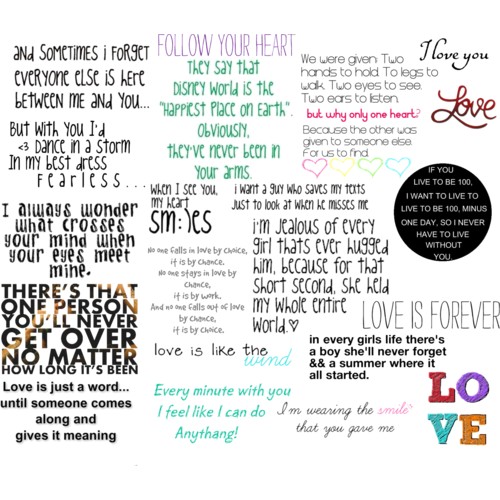 and sometimes i forget
everyone else is here
between me and you...
But with you I'd
<3 Dance in a storm
In my best dress
Fearless...
FOLLOW YOUR HEART
They say that
Disney World is the
"Happiest Place on Earth".
Obviously,
they've never been in
your arms.
We were given: Two
hands to hold. To legs to
walk. Two eyes to see.
Two ears to listen.
but why only one heart?
Because the other was
given to someone else.
For us to find.
I love you
Love
IF YOU
LIVE TO BE 100,
I WANT TO LIVE TO
LIVE TO BE 100, MINUS
ONE DAY, SO I NEVER
HAVE TO LIVE
WITHOUT
YOU.
I always wonder
what crosses
your mind when
your eyes meet
mine.
when I see you,
my heart
sm:)es
i want a guy who saves my texts
Just to look at when he misses me
No one falls in love by choice,
it is by chance.
No one stays in love by
chance,
it is by work.
And no one falls out of love
by chance,
it is by choice.
i'm jealous of every
girl thats ever hugged
him, because for that
short second, she held
my whole entire
world.♡
THERE'S THAT
ONE PERSON
YOU'LL NEVER
GET OVER
NO MATTER
HOW LONG IT'S BEEN
love is like the
wind
LOVE IS FOREVER
in every girls life there's
a boy she'll never forget
&& a summer where it
all started.
Love is just a word...
until someone comes
along and
gives it meaning
Every minute with you
I feel like I can do
Anythang!
I'm wearing the smile
that you gave me
LO
VE